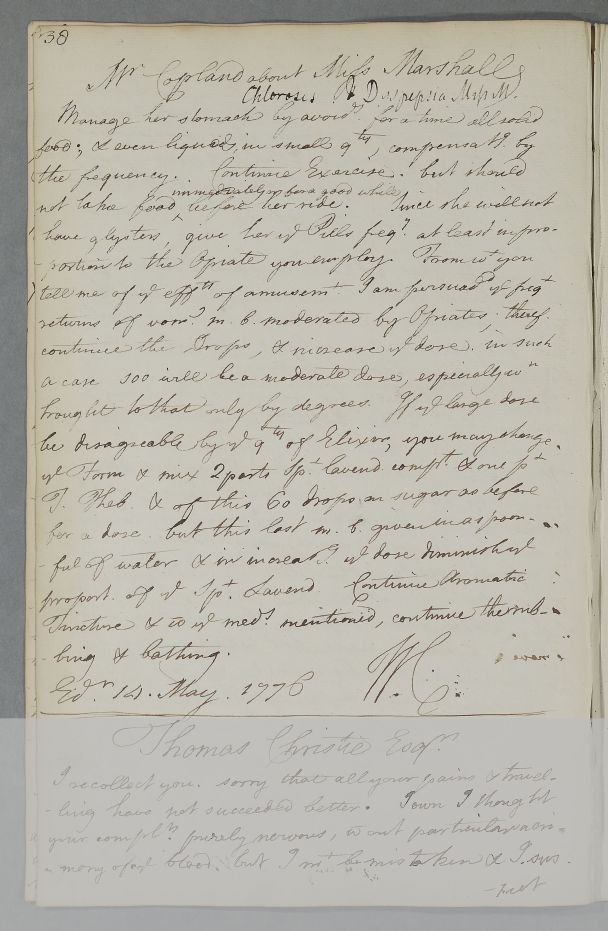 38
Mr Copland about Miss Marshall
Chlorosis & Dyspepsia Miss M.
Manage her stomach by avoidg for a time all solid
food; & even liquids in small qtys, compensatg by
the frequency. Continue Exercise. but should
immediately or for a good while
not take food before her ride. Since she will not
have glysters, give her ye Pills freqy at least in pro-
-portion to the Opiate you employ. From wt you
tell me of ye effts of amusemt I am persuadd yt freqt
returns of vomg m. b. moderated by Opiates; theref.
continue the Drops, & increase ye dose. in such
a case 100 will be a moderate dose, especially wn
brought to that only by degrees. If ye large dose
be disagreable by ye qty of Elixir, you may change
ye Form & mix 2 parts Spt lavend. compt & one pt
T. Theb. & of this 60 drops on sugar as before
for a dose. but this last m. b. given in a spoon-
-ful of water & in increasg ye dose diminish ye
proport. of ye Spt Lavend. Continue Aromatic
Tincture & to ye meds mentioned, continue the rub-
-bing & bathing.
Edr 14. May. 1776 WC.
Thomas Christie Esqr
I recollect you. sorry that all your pains & travel-
-ling have not succeeded better. I own I thought
your complt purely nervous, wout particular acri-
-mony of ye blood. but I mt be mistaken & I sus-
-pect